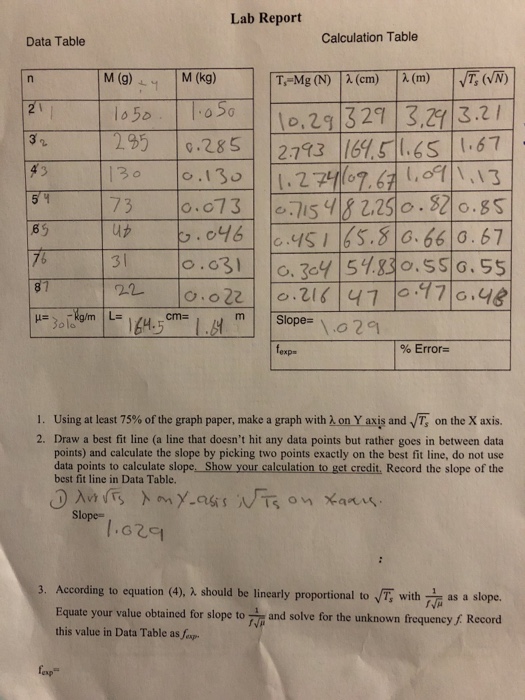 Lab Report
Data Table
Calculation Table
n M (g) M (kg)
2 1 1050 1.050
3 2 285 0.285
4 3 130 0.130
5 4 73 0.073
6 5 46 0.046
7 6 31 0.031
8 7 22 0.022
μ= kg/m L= 164.5 cm= 1.64 m
Ts=Mg (N) λ (cm) λ (m) √Ts (√N)
10.29 329 3.29 3.21
2.793 164.5 1.65 1.67
1.274 109.67 1.09 1.13
0.7154 82.25 0.82 0.85
0.451 65.8 0.66 0.67
0.304 54.83 0.55 0.55
0.216 47 0.47 0.48
Slope= 1.029
fexp= % Error=
1. Using at least 75% of the graph paper, make a graph with λ on Y axis and √Ts on the X axis.
2. Draw a best fit line (a line that doesn't hit any data points but rather goes in between data
points) and calculate the slope by picking two points exactly on the best fit line, do not use
data points to calculate slope. Show your calculation to get credit. Record the slope of the
best fit line in Data Table.
① λ √Ts λ on Y-axis √Ts on X axis.
Slope=
1.029
3. According to equation (4), λ should be linearly proportional to √Ts with 1/f√μ as a slope.
Equate your value obtained for slope to 1/f√μ and solve for the unknown frequency f. Record
this value in Data Table as fexp.
fexp=